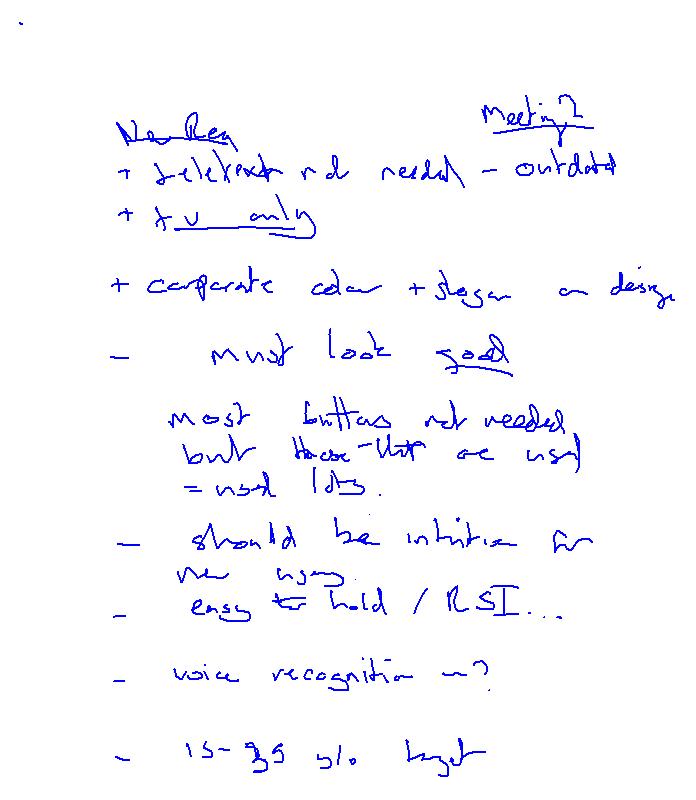 Meeting 2
New Req
+ teletext not needed - outdated
+ tv only
+ corporate colour + slogan on design
- must look good
most buttons not needed
but those that are used
= used lots.
- should be intuitive for
new users.
- easy to hold / RSI...
- voice recognition ?
- 15-35 y/o target